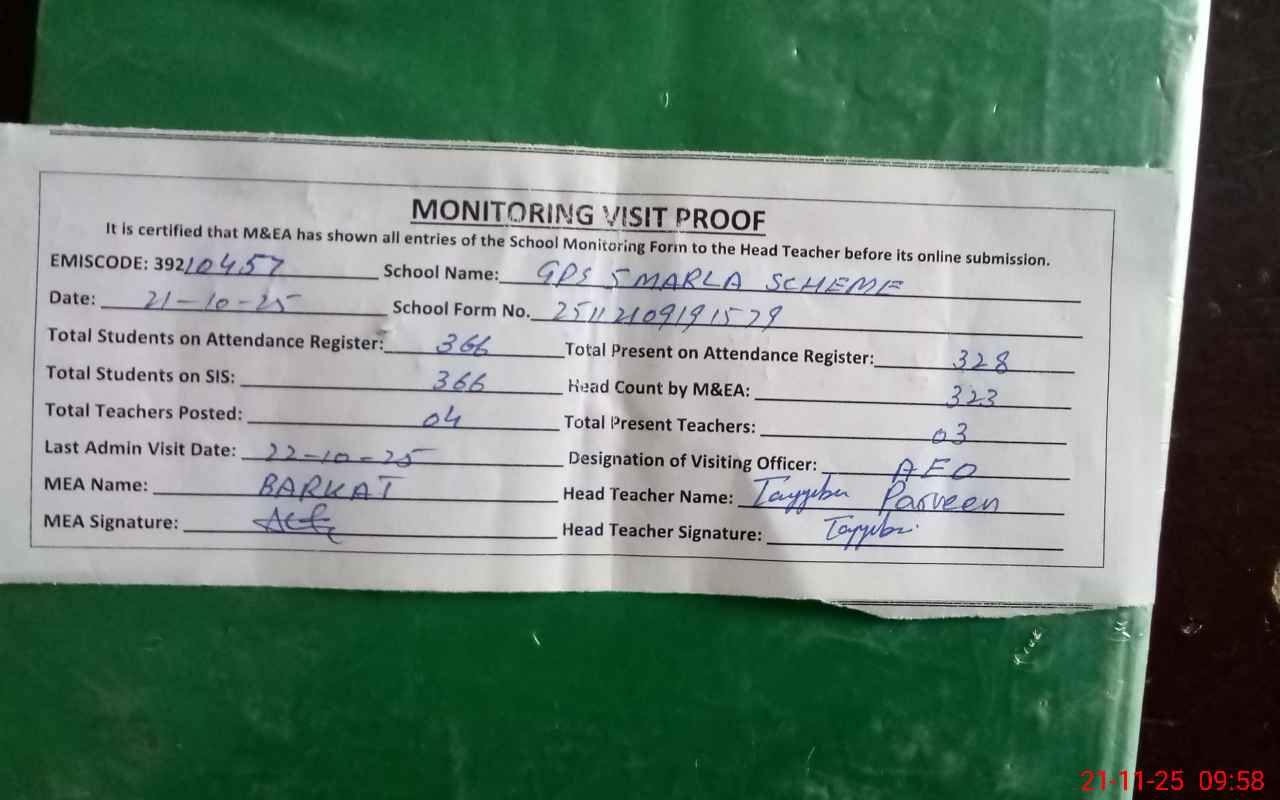 MONITORING VISIT PROOF
It is certified that M&EA has shown all entries of the School Monitoring Form to the Head Teacher before its online submission.
EMISCODE: 39210457 School Name: GPS 5 MARLA SCHEME
Date: 21-10-25 School Form No. 25112109191579
Total Students on Attendance Register: 366 Total Present on Attendance Register: 328
Total Students on SIS: 366 Head Count by M&EA: 323
Total Teachers Posted: 04 Total Present Teachers: 03
Last Admin Visit Date: 22-10-25 Designation of Visiting Officer: AEO
MEA Name: BARKAT Head Teacher Name: Tayyeba Parveen
MEA Signature: Head Teacher Signature: Tayyeba
21-11-25 09:58